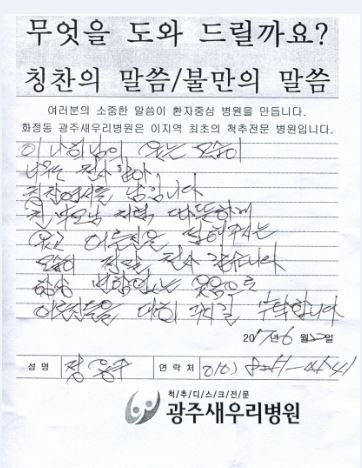 무엇을 도와 드릴까요?
칭찬의 말씀/불만의 말씀
여러분의 소중한 말씀이 환자중심 병원을 만듭니다.
화정동 광주새우리병원은 이지역 최초의 척추전문 병원입니다.
이 나희님이 웃는 모습이
너무나 감사합니다
칭찬엽서를 남깁니다
저 부모님 처럼 따뜻하게
웃고 어르신을
모습이 정말 감사합니다
항상 변함없는 웃음으로
어르신들을 대해 주시길 부탁합니다
2017년 6월 22일
성 명 정 연락처 010)
척/추/디/스/크/전/문
광주새우리병원